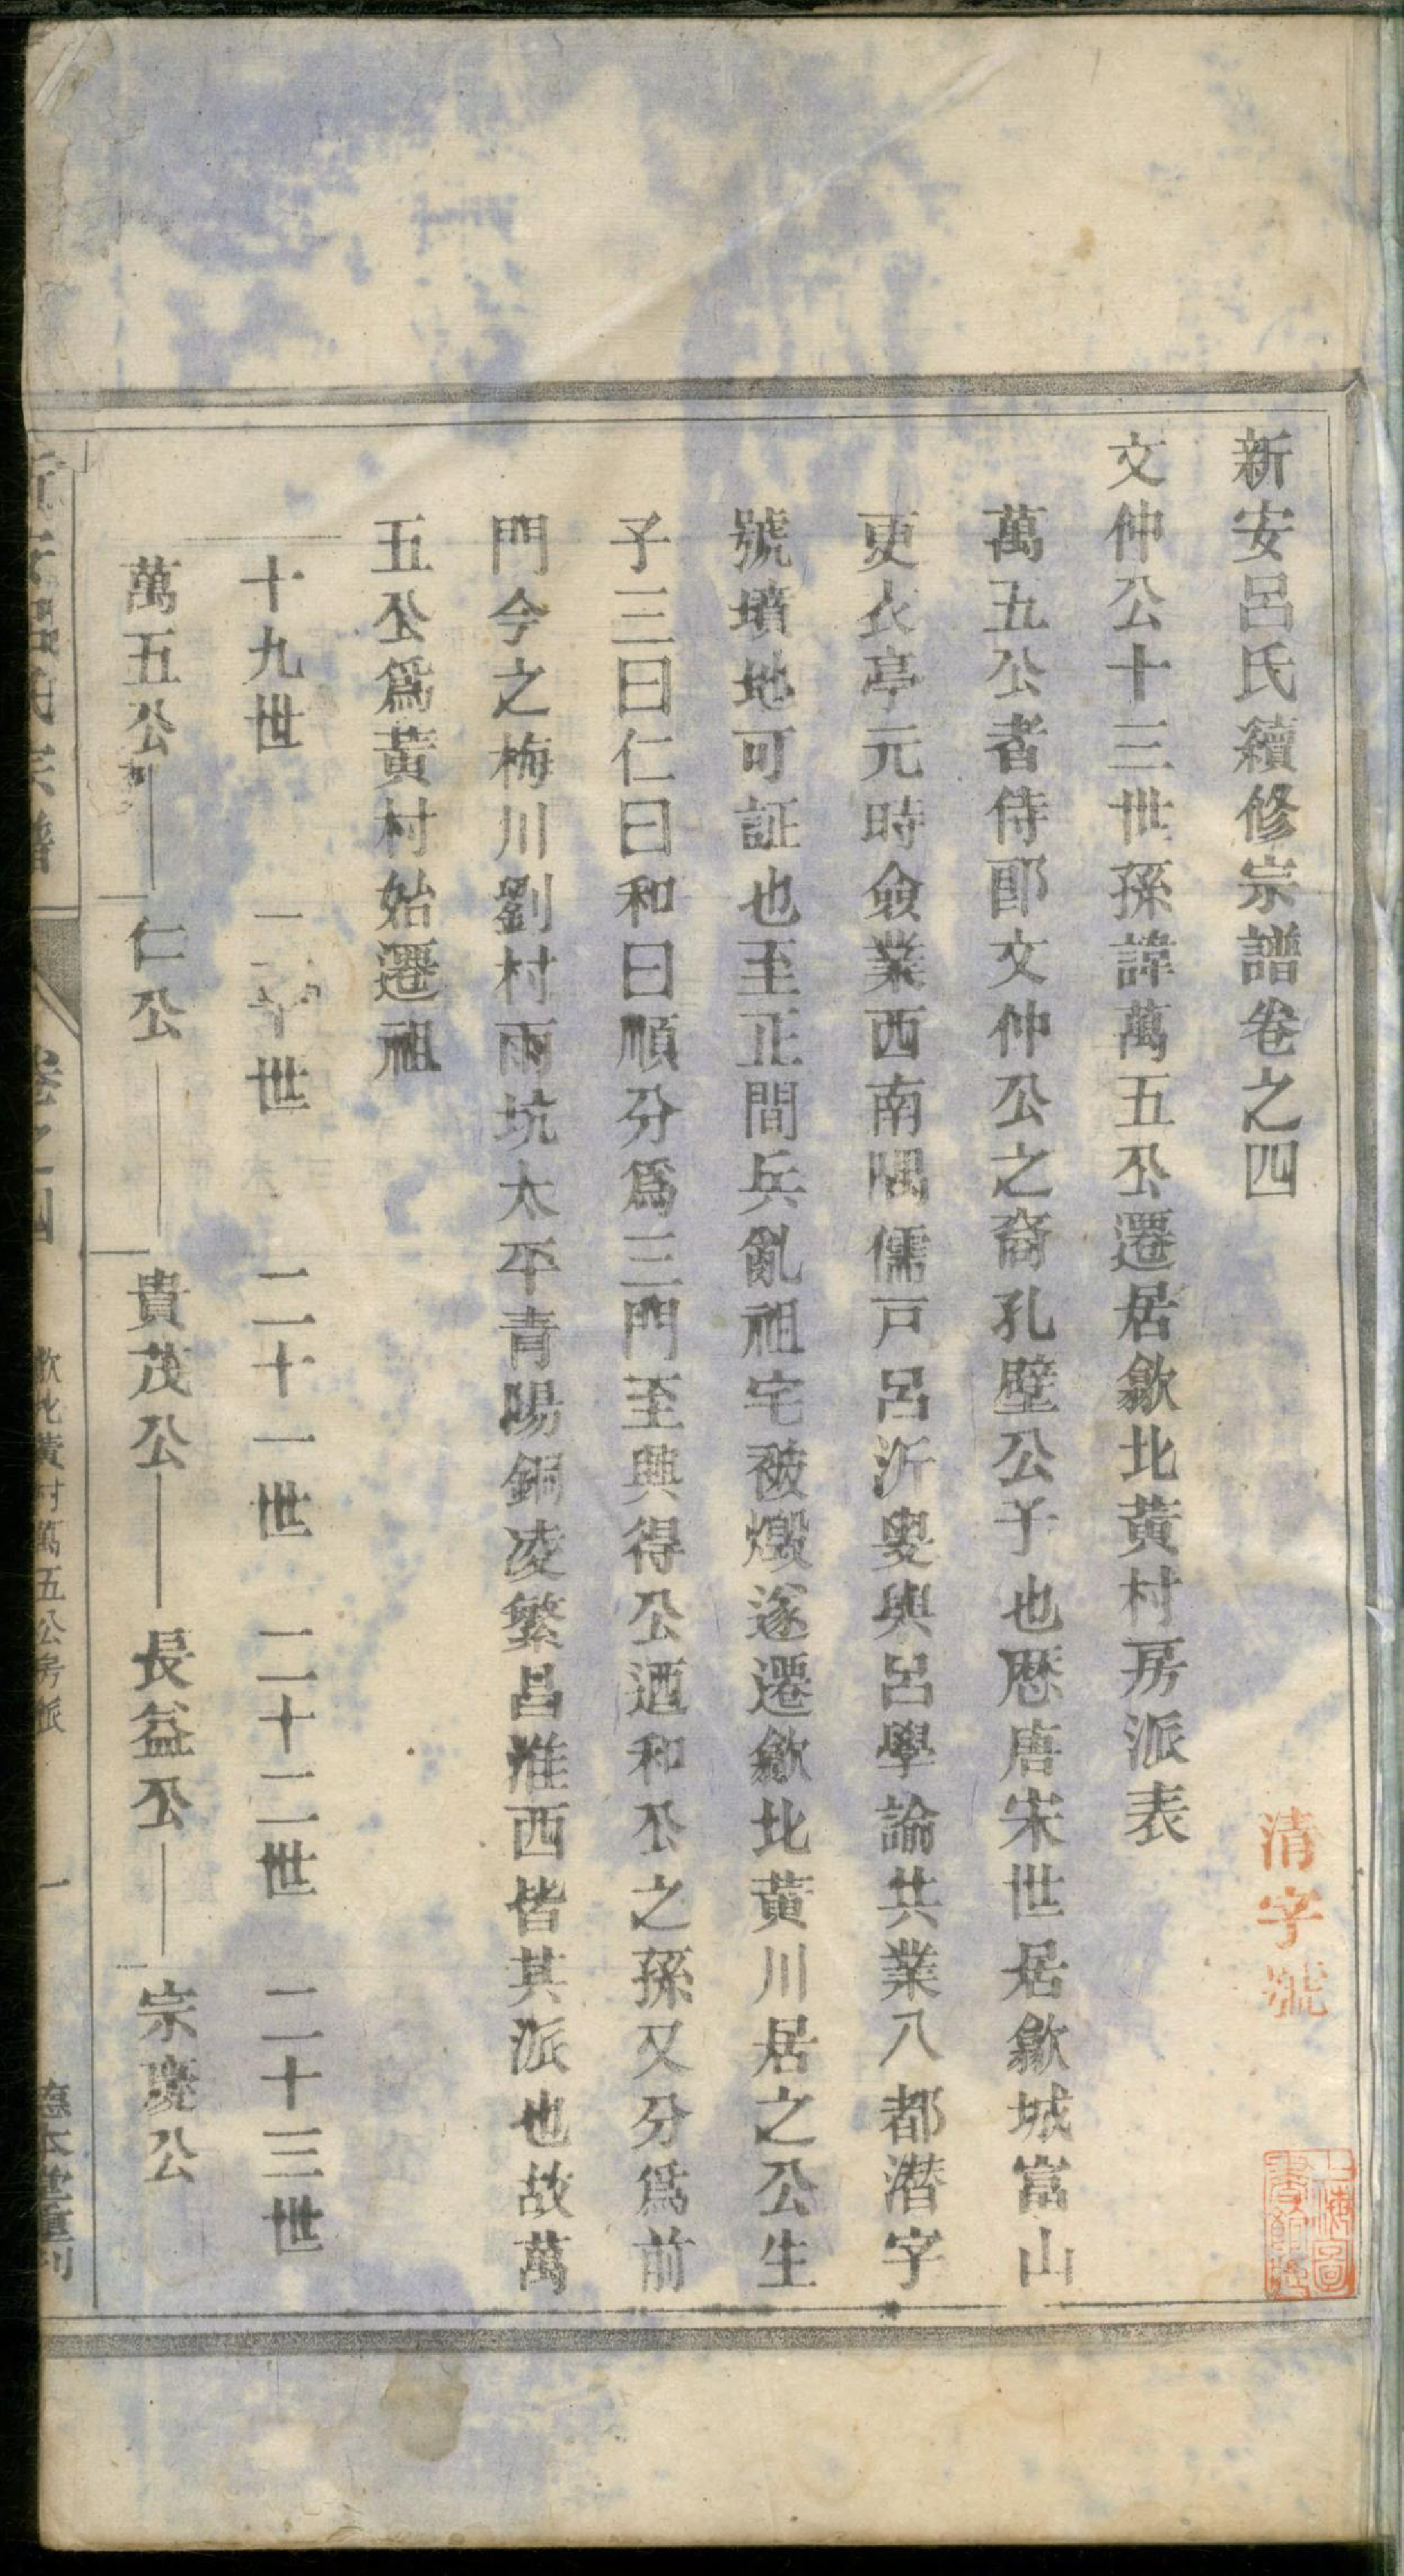 新安呂氏續修宗譜卷之四
清字號
上海圖書館藏
文仲公十三世孫諱萬五公遷居歙北黃村房派表
萬五公者侍郎文仲公之裔孔壁公子也歷唐宋世居歙城富山
更衣亭元時僉業西南隅儒戸呂沂叟與呂學論共業八都潛字
號墳地可証也至正間兵亂祖宅被燬遂遷歙北黃川居之公生
子三曰仁曰和曰順分爲三門至興得公迺和公之孫又分爲前
門今之梅川劉村雨坑太平青陽銅凌繁昌淮西皆其派也故萬
五公爲黃村始遷祖
十九世 二十世 二十一世 二十二世 二十三世
萬五公 仁公 貴茂公 長益公 宗慶公
新安呂氏宗譜 卷之四 歙北黃村萬五公房派 一 德本堂重刊